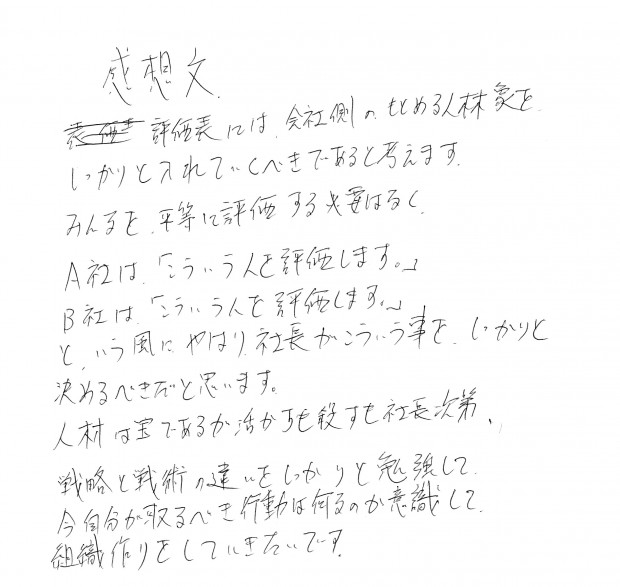 感想文.
評価表には、会社側のもとめる人材象を
しっかりと入れていくべきであると考えます.
みんなを、平等に評価する必要はなく、
A社は、「こういう人を評価します。」
B社は、「こういう人を評価します。」
と、いう風に、やはり、社長がこういう事を、しっかりと
決めるべきだと思います。
人材は宝であるが活かすも殺すも社長次第、
戦略と戦術の違いをしっかりと勉強して、
今自分が取るべき行動は何なのか意識して、
組織作りをしていきたいです.